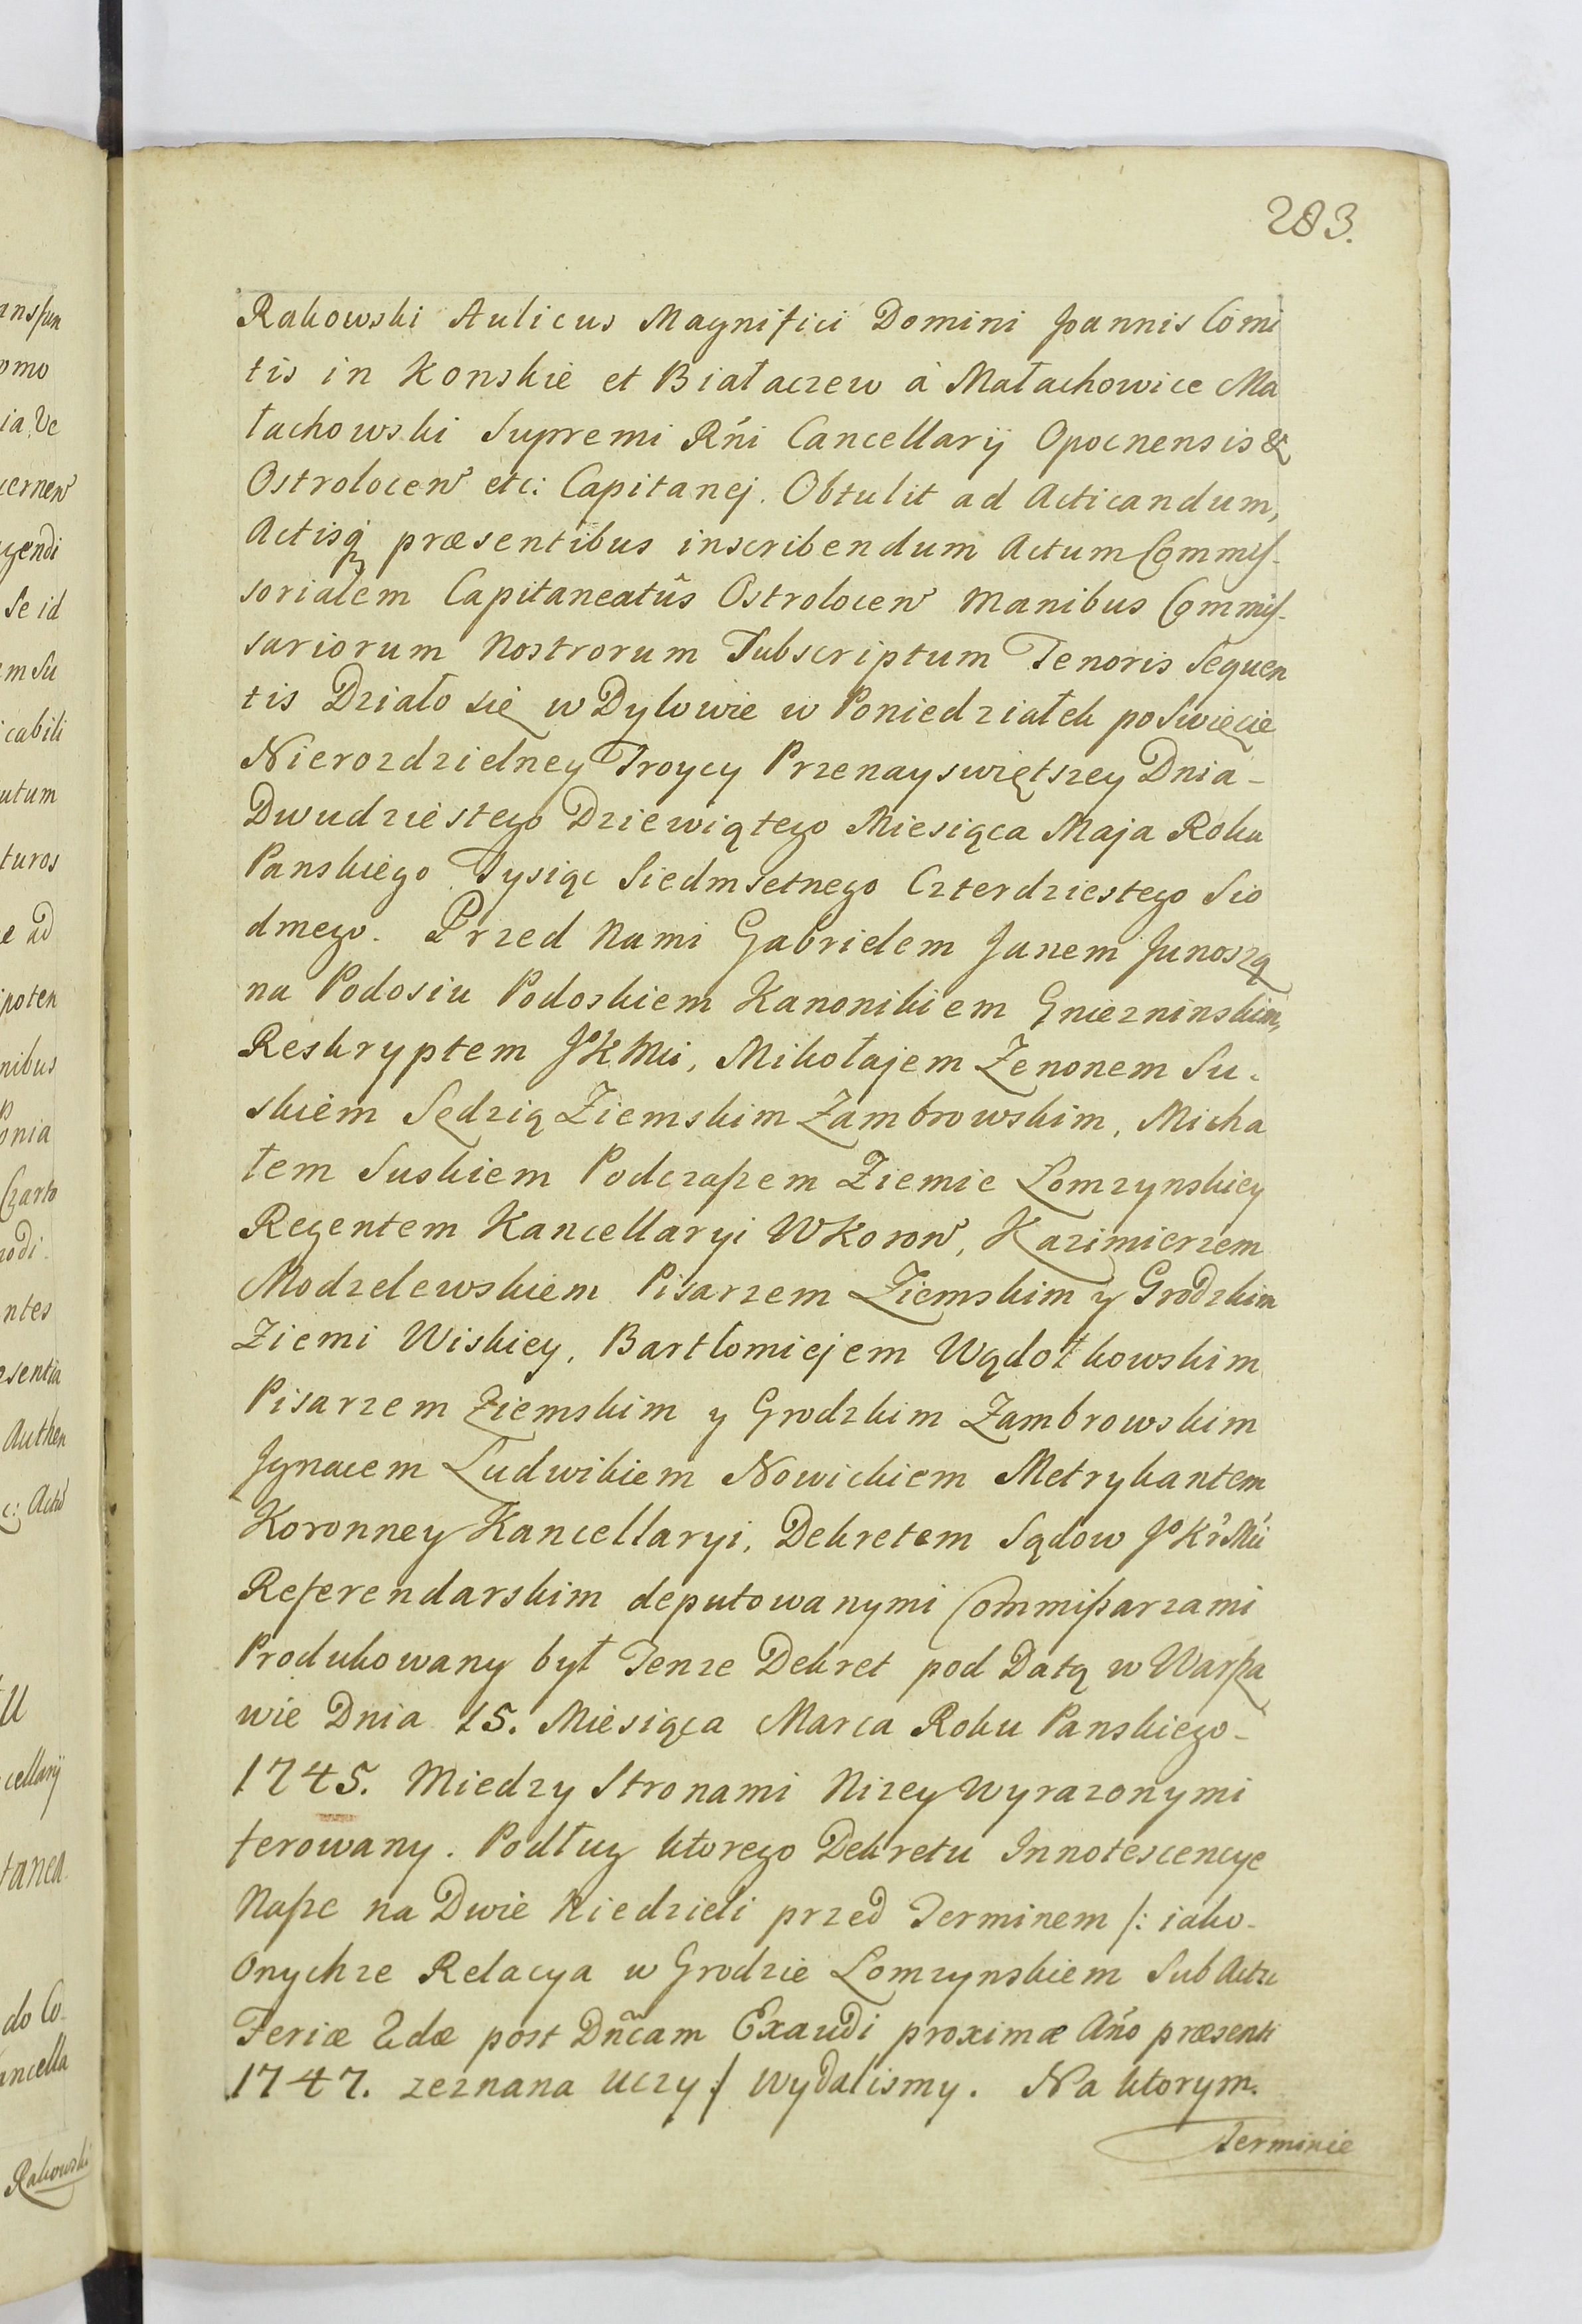 283.
Rakowski Aulicus Magnifici Domini Joannis Comi
tis in Konskie et Białaczew à Małachowice Ma
łachowski Supremi Rńi Cancellarij Opocnensis &
Ostrolocen̄ etc: Capitanej. Obtulit ad Acticandum,
Actisq́ præsentibus inscribendum Actum Commis-
sorialem Capitaneatûs Ostrolocen̄ Manibus Commis-
sariorum Nostrorum Subscriptum Tenoris Sequen
tis Działo się w Dylowie w Poniedziałek po Swięcie
Nierozdzielney Troycy Przenayswiętszey Dnia-
Dwudziestego Dziewiątego Miesiąca Maja Roku
Panskiego Tysiąc Siedmsetnego Czterdziestego Sio
dmego. Przed Nami Gabrielem Janem Junoszą
na Podosiu Podoskiem Kanonikiem Gniezninskim,
Reskryptem JoKMći, Mikołajem Zenonem Su-
skiem Sędzią Ziemskim Zambrowskim, Micha
łem Suskiem Podczaszem Ziemie Lomzynskiey
Regentem Kancellaryi WKoron̄, Kazimierzem
Modzelewskiem Pisarzem Ziemskim y Grodzkim
Ziemi Wiskiey, Bartłomiejem Wądołkowskim
Pisarzem Ziemskim y Grodzkim Zambrowskim
Jgnacem Ludwikiem Nowickiem Metrykantem
Koronney Kancellaryi, Dekretem Sądow JoKr̄Mći
Referendarskim deputowanymi Commißarzami
Produkowany był Tenze Dekret pod Datą w Warsza
wie Dnia 15. Miesiąca Marca Roku Panskiego-
1745. Miedzy Stronami Nizey Wyrazonymi
ferowany. Podług ktorego Dekretu Innotescencye
Nasze na Dwie Niedzieli przed Terminem /: iako-
Onychze Relacya w Grodzie Lomzynskiem Sub Actu
Feriæ 2dæ post Dñcam Exaudi proximæ Ańo præsenti
1747. zeznana uczy :/ wydalismy. Na ktorym.
Terminie